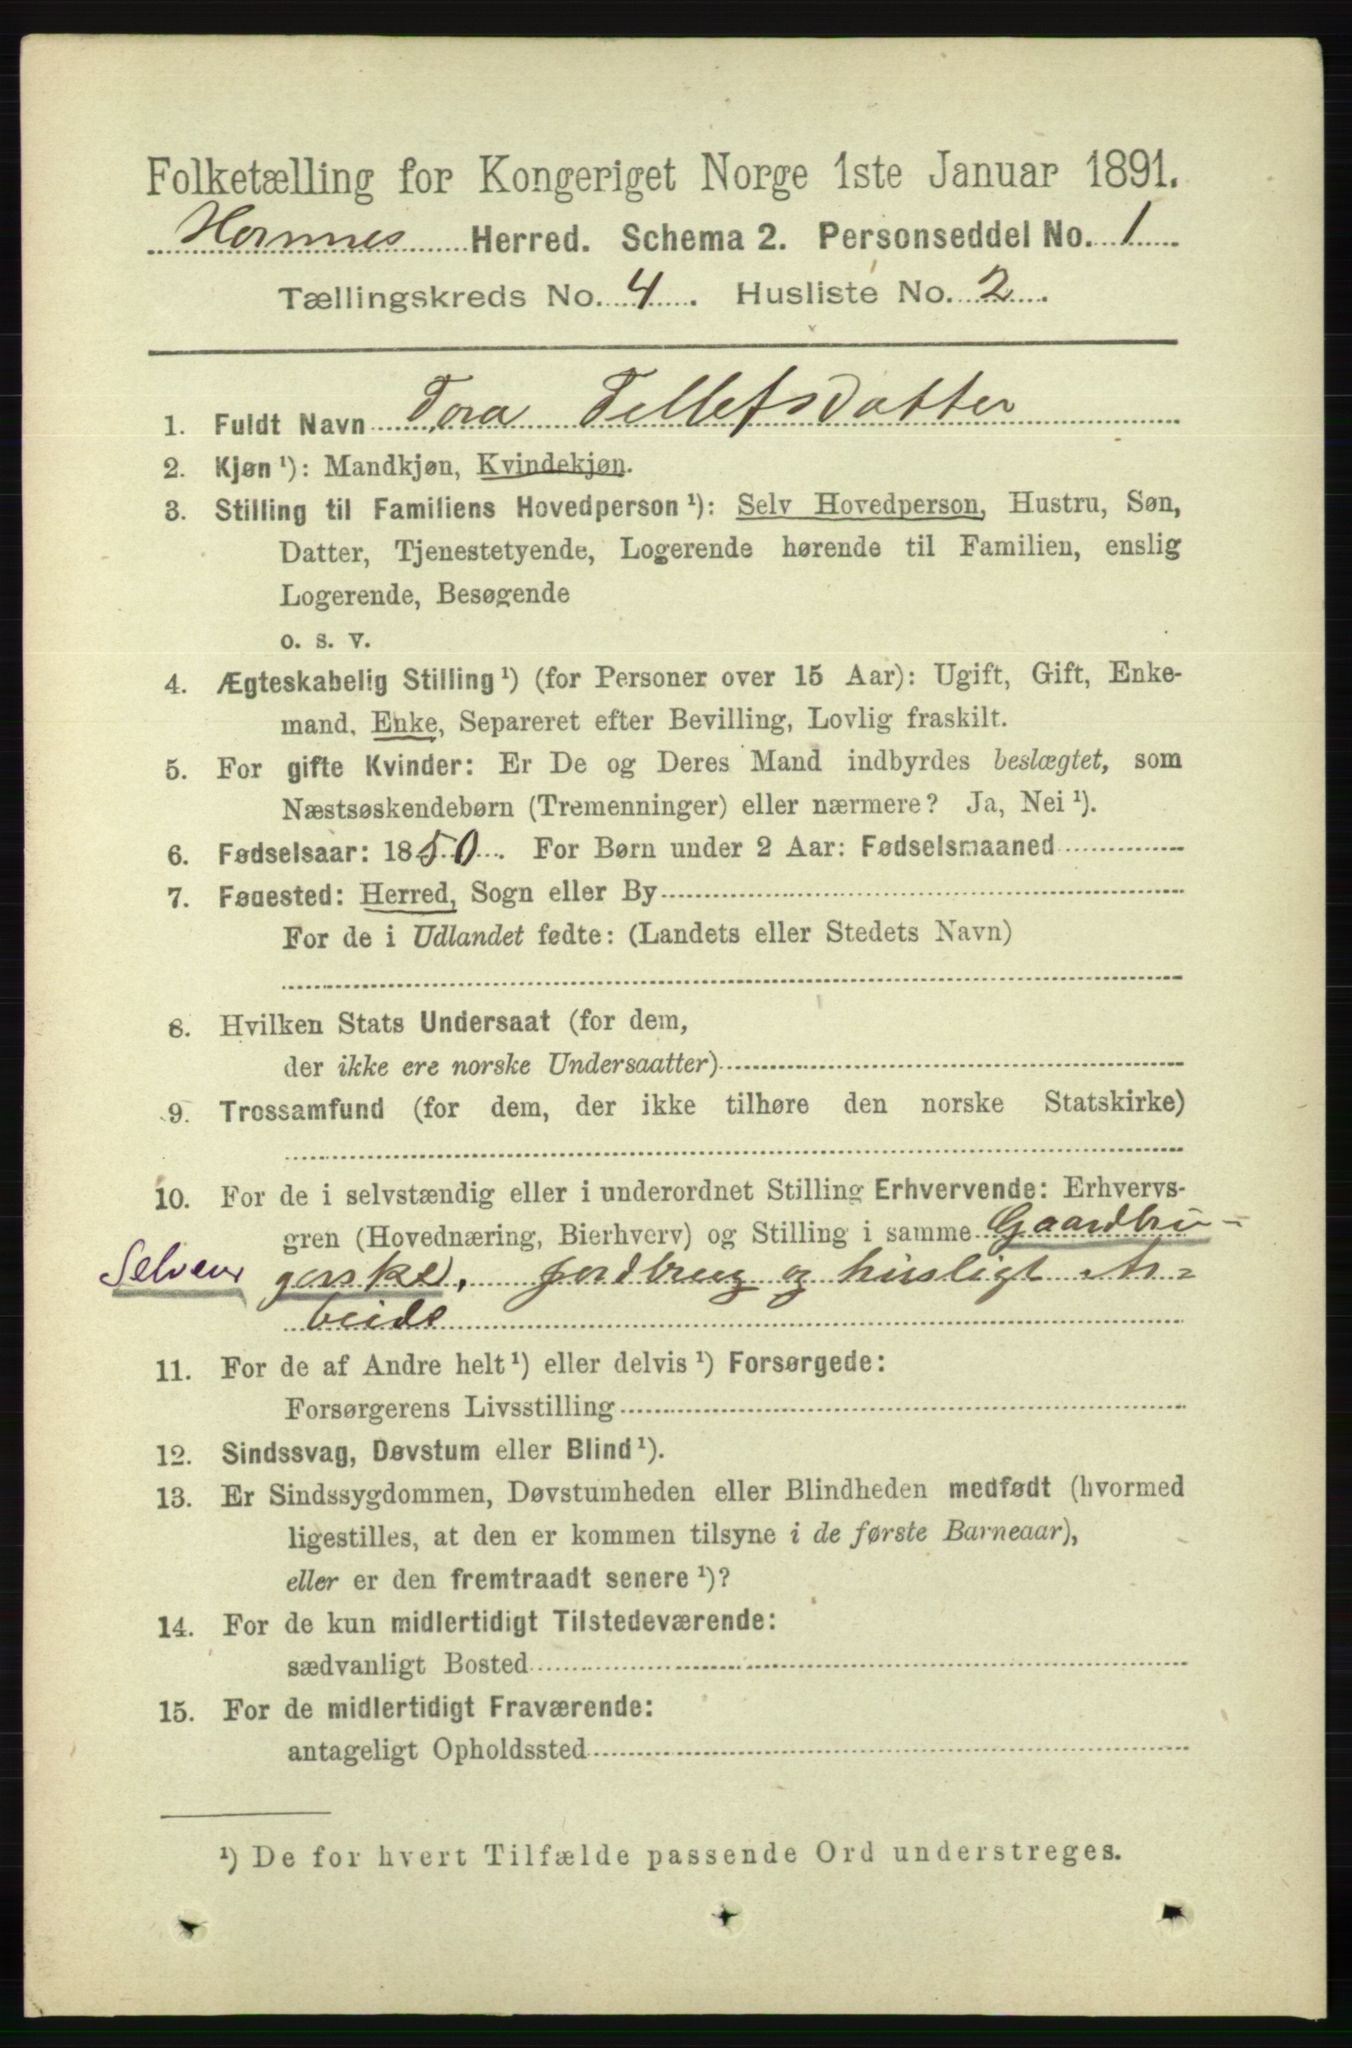 Folketælling for Kongeriget Norge 1ste Januar 1891.
Hornnes Herred. Schema 2. Personseddel No. 1
Tællingskreds No. 4. Husliste No. 2.
1. Fuldt Navn Tora Tellefsdatter
2. Kjøn ¹): Mandkjøn, Kvindekjøn.
3. Stilling til Familiens Hovedperson ¹): Selv Hovedperson, Hustru, Søn,
Datter, Tjenestetyende, Logerende hørende til Familien, enslig
Logerende, Besøgende
o. s. v.
4. Ægteskabelig Stilling ¹) (for Personer over 15 Aar): Ugift, Gift, Enke-
mand, Enke, Separeret efter Bevilling, Lovlig fraskilt.
5. For gifte Kvinder: Er De og Deres Mand indbyrdes beslægtet, som
Næstsøskendebørn (Tremenninger) eller nærmere? Ja, Nei ¹).
6. Fødselsaar: 1850. For Børn under 2 Aar: Fødselsmaaned
7. Fødested: Herred, Sogn eller By
For de i Udlandet fødte: (Landets eller Stedets Navn)
8. Hvilken Stats Undersaat (for dem,
der ikke ere norske Undersaatter)
9. Trossamfund (for dem, der ikke tilhøre den norske Statskirke)
10. For de i selvstændig eller i underordnet Stilling Erhvervende: Erhvervs-
gren (Hovednæring, Bierhverv) og Stilling i samme Gaardbru-
Selveier gerske, jordbrug og husligt Ar-
beide
11. For de af Andre helt ¹) eller delvis ¹) Forsørgede:
Forsørgerens Livsstilling
12. Sindssvag, Døvstum eller Blind ¹).
13. Er Sindssygdommen, Døvstumheden eller Blindheden medfødt (hvormed
ligestilles, at den er kommen tilsyne i de første Barneaar),
eller er den fremtraadt senere ¹)?
14. For de kun midlertidigt Tilstedeværende:
sædvanligt Bosted
15. For de midlertidigt Fraværende:
antageligt Opholdssted
¹) De for hvert Tilfælde passende Ord understreges.